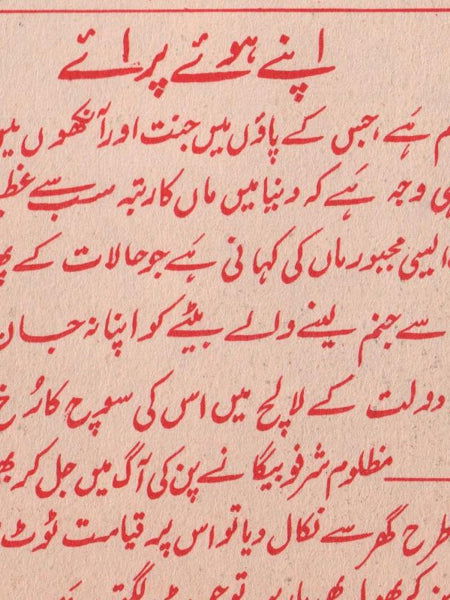 اپنے ہوئے پرائے
ہے، جس کے پاؤں میں جنت اور آنکھوں میں
وجہ ہے کہ دنیا میں ماں کا رتبہ سب سے
ایسی مجبور ماں کی کہانی ہے جو حالات کے
سے جنم لینے والے بیٹے کو اپنا نہ جان
دولت کے لالچ میں اس کی سوچ کا رُخ
مظلوم شرفو بیگانے پن کی آگ میں جل کر
طرح گھر سے نکال دیا تو اس پر قیامت ٹوٹ